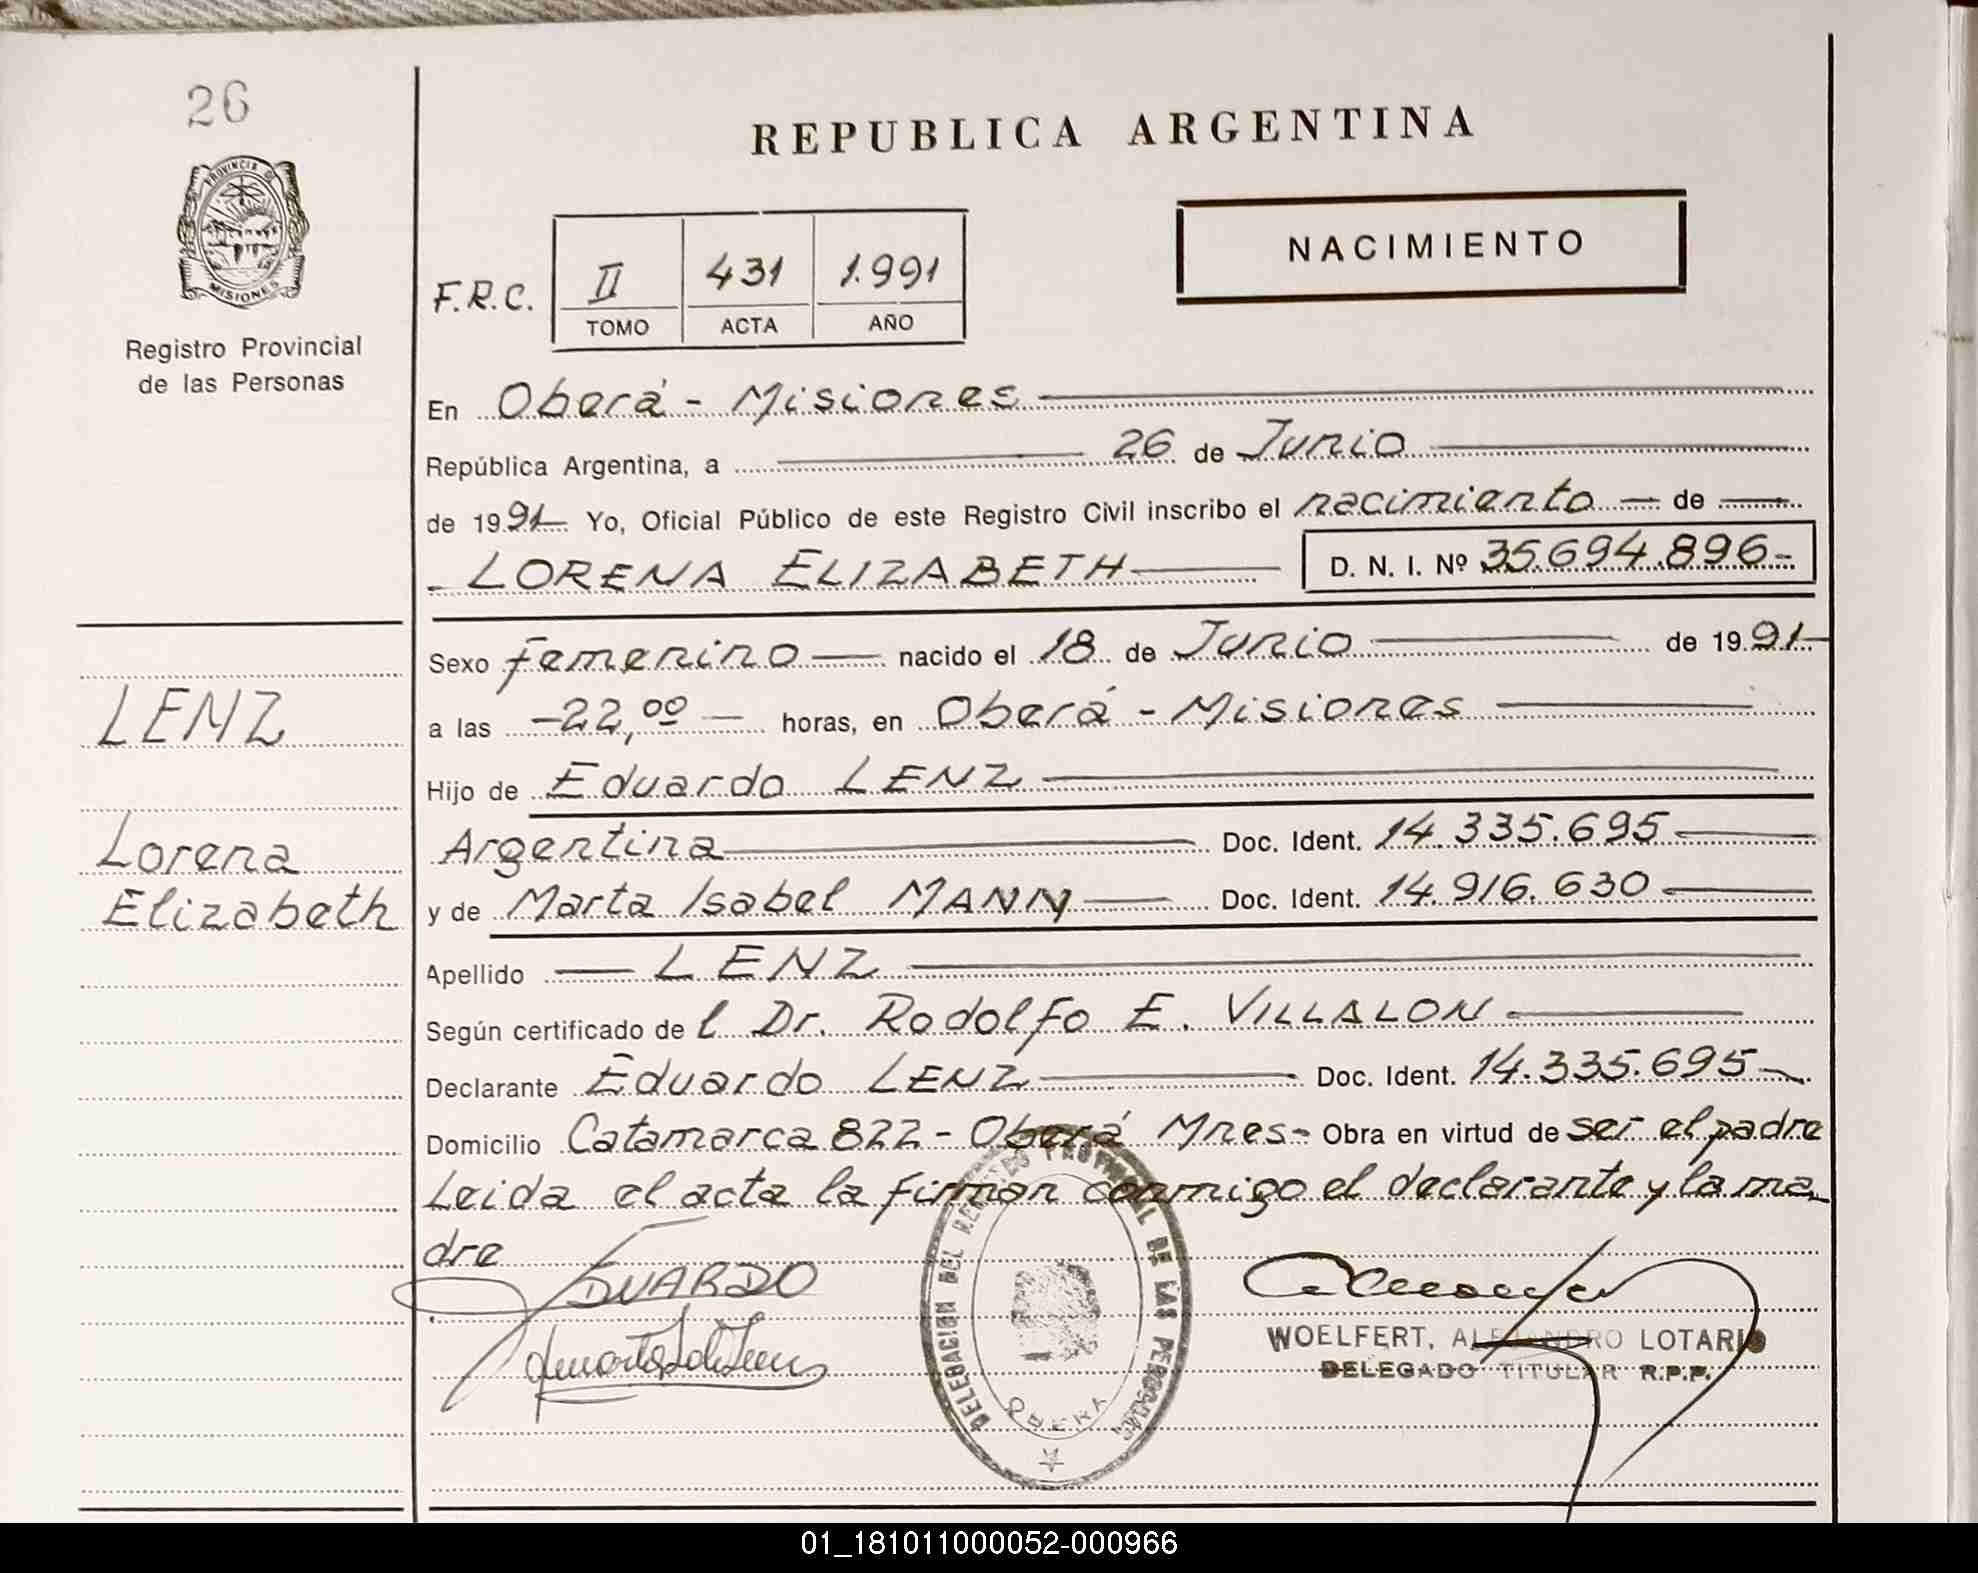 26
PROVINCIA DE
MISIONES
Registro Provincial
de las Personas
REPUBLICA ARGENTINA
NACIMIENTO
F.R.C. II 431 1.991
TOMO ACTA AÑO
En Oberá - Misiones
República Argentina, a 26 de Junio
de 1991 Yo, Oficial Público de este Registro Civil inscribo el nacimiento de
LORENA ELIZABETH D. N. I. Nº 35.694.896-
Sexo femenino nacido el 18 de Junio de 1991
a las -22,00 horas, en Oberá - Misiones
Hijo de Eduardo LENZ
Argentina Doc. Ident. 14.335.695
y de Marta Isabel MANN Doc. Ident. 14.916.630
Apellido LENZ
Según certificado del Dr. Rodolfo E. VILLALON
Declarante Eduardo LENZ Doc. Ident. 14.335.695
Domicilio Catamarca 822 - Oberá Mnes- Obra en virtud de ser el padre
Leida el acta la firman conmigo el declarante y la ma
dre
LENZ
Lorena
Elizabeth
EDUARDO
DELEGACION DEL REGISTRO PROVINCIAL DE LAS PERSONAS
OBERA
WOELFERT, ALEJANDRO LOTARIO
DELEGADO TITULAR R.P.P.
01_181011000052-000966